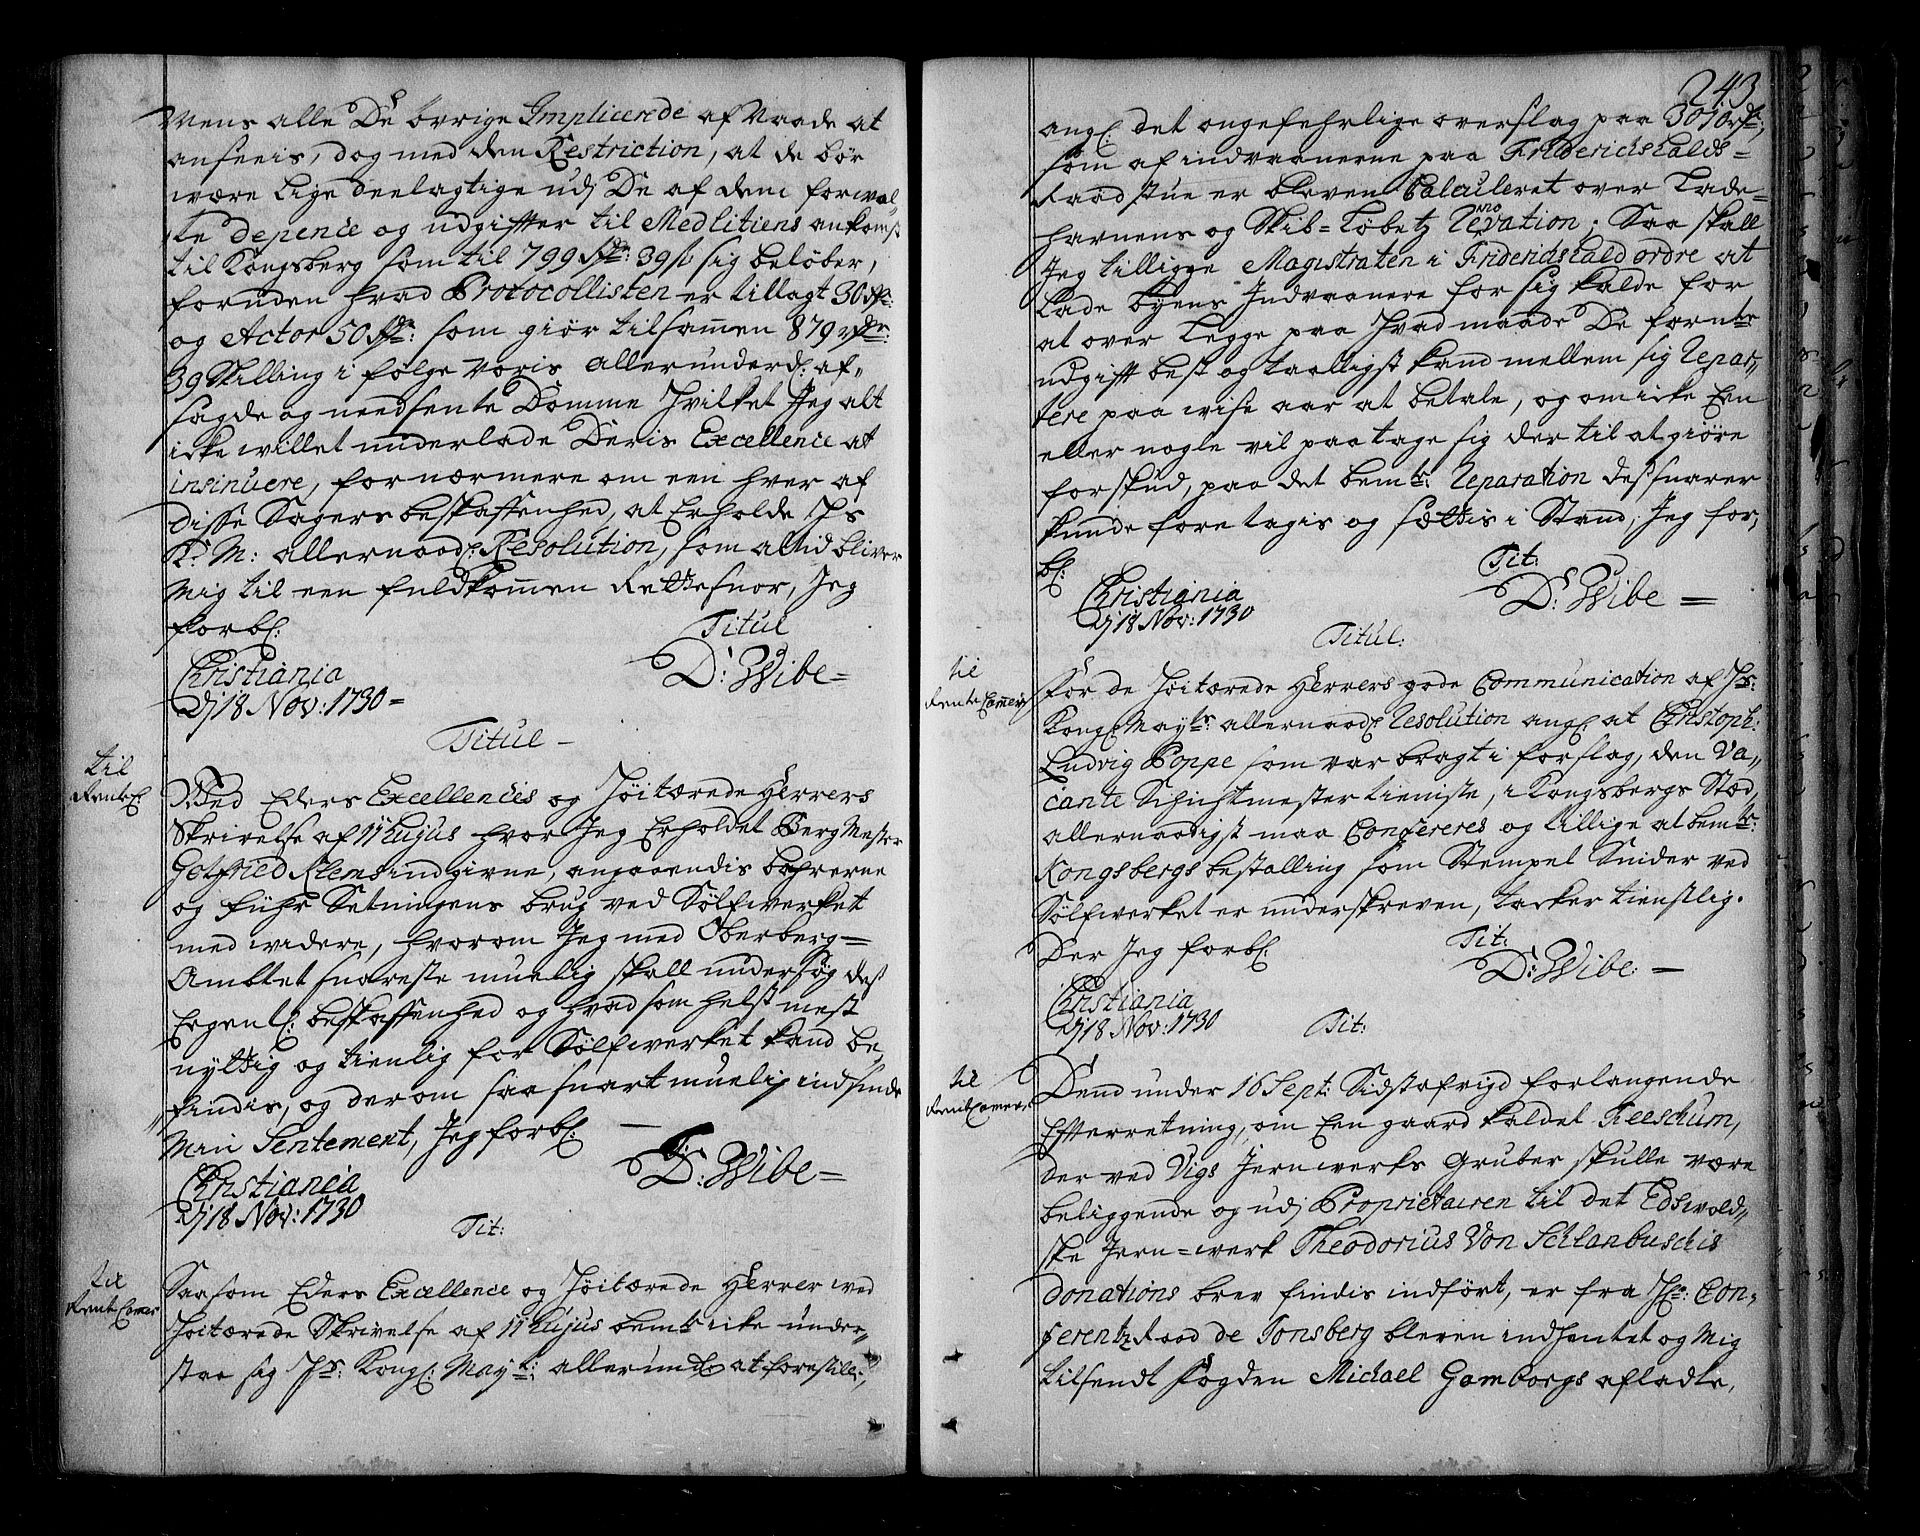 Mens alle De övrige Implicerede af Naade at
anseeis, dog med den Restriction, at de bør
være lige deelagtige udj De af dem forvol-
te depence og udgiffter til Meditiens ankomst
til Kongsberg som til 799 Rdr: 39 s sig beløber,
foruden hvad Protocollisten er tillagt 30 Rdr:
og Actor 50 Rdr: som giør tilsamen 879 Rdr:
39 Skilling i følge voris allerunderd: af-
sagde og needsente Domme Hvilket Jeg alt
icke willet underlade Deris Excellence at
insinuere, for nærmere om een hver af
disse Sagers beskaffenhed, at Erholde Hs
K: M: allernaad: Resolution, som altid bliver
Mig til een fuldkomen Rettesnor, Jeg
forbl:
Titul
Christiania
dj 18 Nov: 1730 =
D: Wibe =
Titul -
til
RenteC
Med Eders Excellences og Høitærede Herrers
Skrivelse af 11 hujus hvor Jeg Erholdet Berg Mester
Gotfried Klems indgivne, angaaendis bohrerne
og Führ Setningens brug ved Sølfwerket
med widere, hvorom Jeg med Oberberg=
Ambtet snareste muelig skall undersøg dest
Egentl: beskaffenhed og hvad som helst mest
nyttig og tienlig for Sølfwerket kand be-
findis, og derom saa snart muelig indsende
Min Sentement, Jeg forbl:
D: Wibe =
Christiania
dj 18 Nov: 1730
Tit:
til
Rente Camer
Saasom Eders Excellence og Høitærede Herrer ved
Høitærede Skrivelse af 11 hujus bemt icke under-
staa sig Hs: Kong: Mayts: allerund at forestille,
243
ang: det ongefehrlige overslag paa 3010 Rdr:,
som af indvaanerne paa Friderichshalds=
Raadstue er bleven Calculeret over Lade=
havnens og Skib-Løbetz Renovation; Saa skall
Jeg tilligge Magistraten i Friderichshald ordre at
lade byens Indvaanere for sig kalde for
at over legge paa Hvad maade De fornte
udgifft best og taalligst kand mellem sig Repar-
tere paa wise aar at betale, og om icke Een
eller nogle vil paatage sig der til at giøre
forskud, paa det bemte: Reparation dessnarer
kunde foretagis og sættis i Stand; Jeg for,
bl:
Tit:
Christiania
dj 18 Nov: 1730
D: Wibe =
Titul:
til
Rente Camer
For de Høitærede Herrers gode Communication af Hs:
Kong: Mayts: allernaad: Resolution ang: at Christoph:
Ludvig Poppe som var bragt i forslag, den Va-
cante Schichtmester tieniste, i Kongsbergs Stæd,
allernaadigst maa Confereres og tillige at bemte:
Kongsbergs bestalling som Stempel Snider ved
Sølfwerket er underskreven, tacker tienstlig.
Der Jeg forbl:
Tit:
D: Wibe: =
Christiania
dj 18 Nov: 1730
Tit:
til
RentCamer
Dend under 16 Sept: Sidstafvigd forlangende
Efterretning, om Een gaard kaldet Feeschum,
der ved Vigs Jernwerks Gruber skulle være
beliggende og udj Proprietairen til det Edswold-
ske Jern=werk Theodorius Von Schlanbuschis
donations brev findis indført, er fra Hr: Con-
ferentz Raad de Tonsberg bleven indhentet og Mig
tilsendt Fogden Michael Gamborgs afladte,